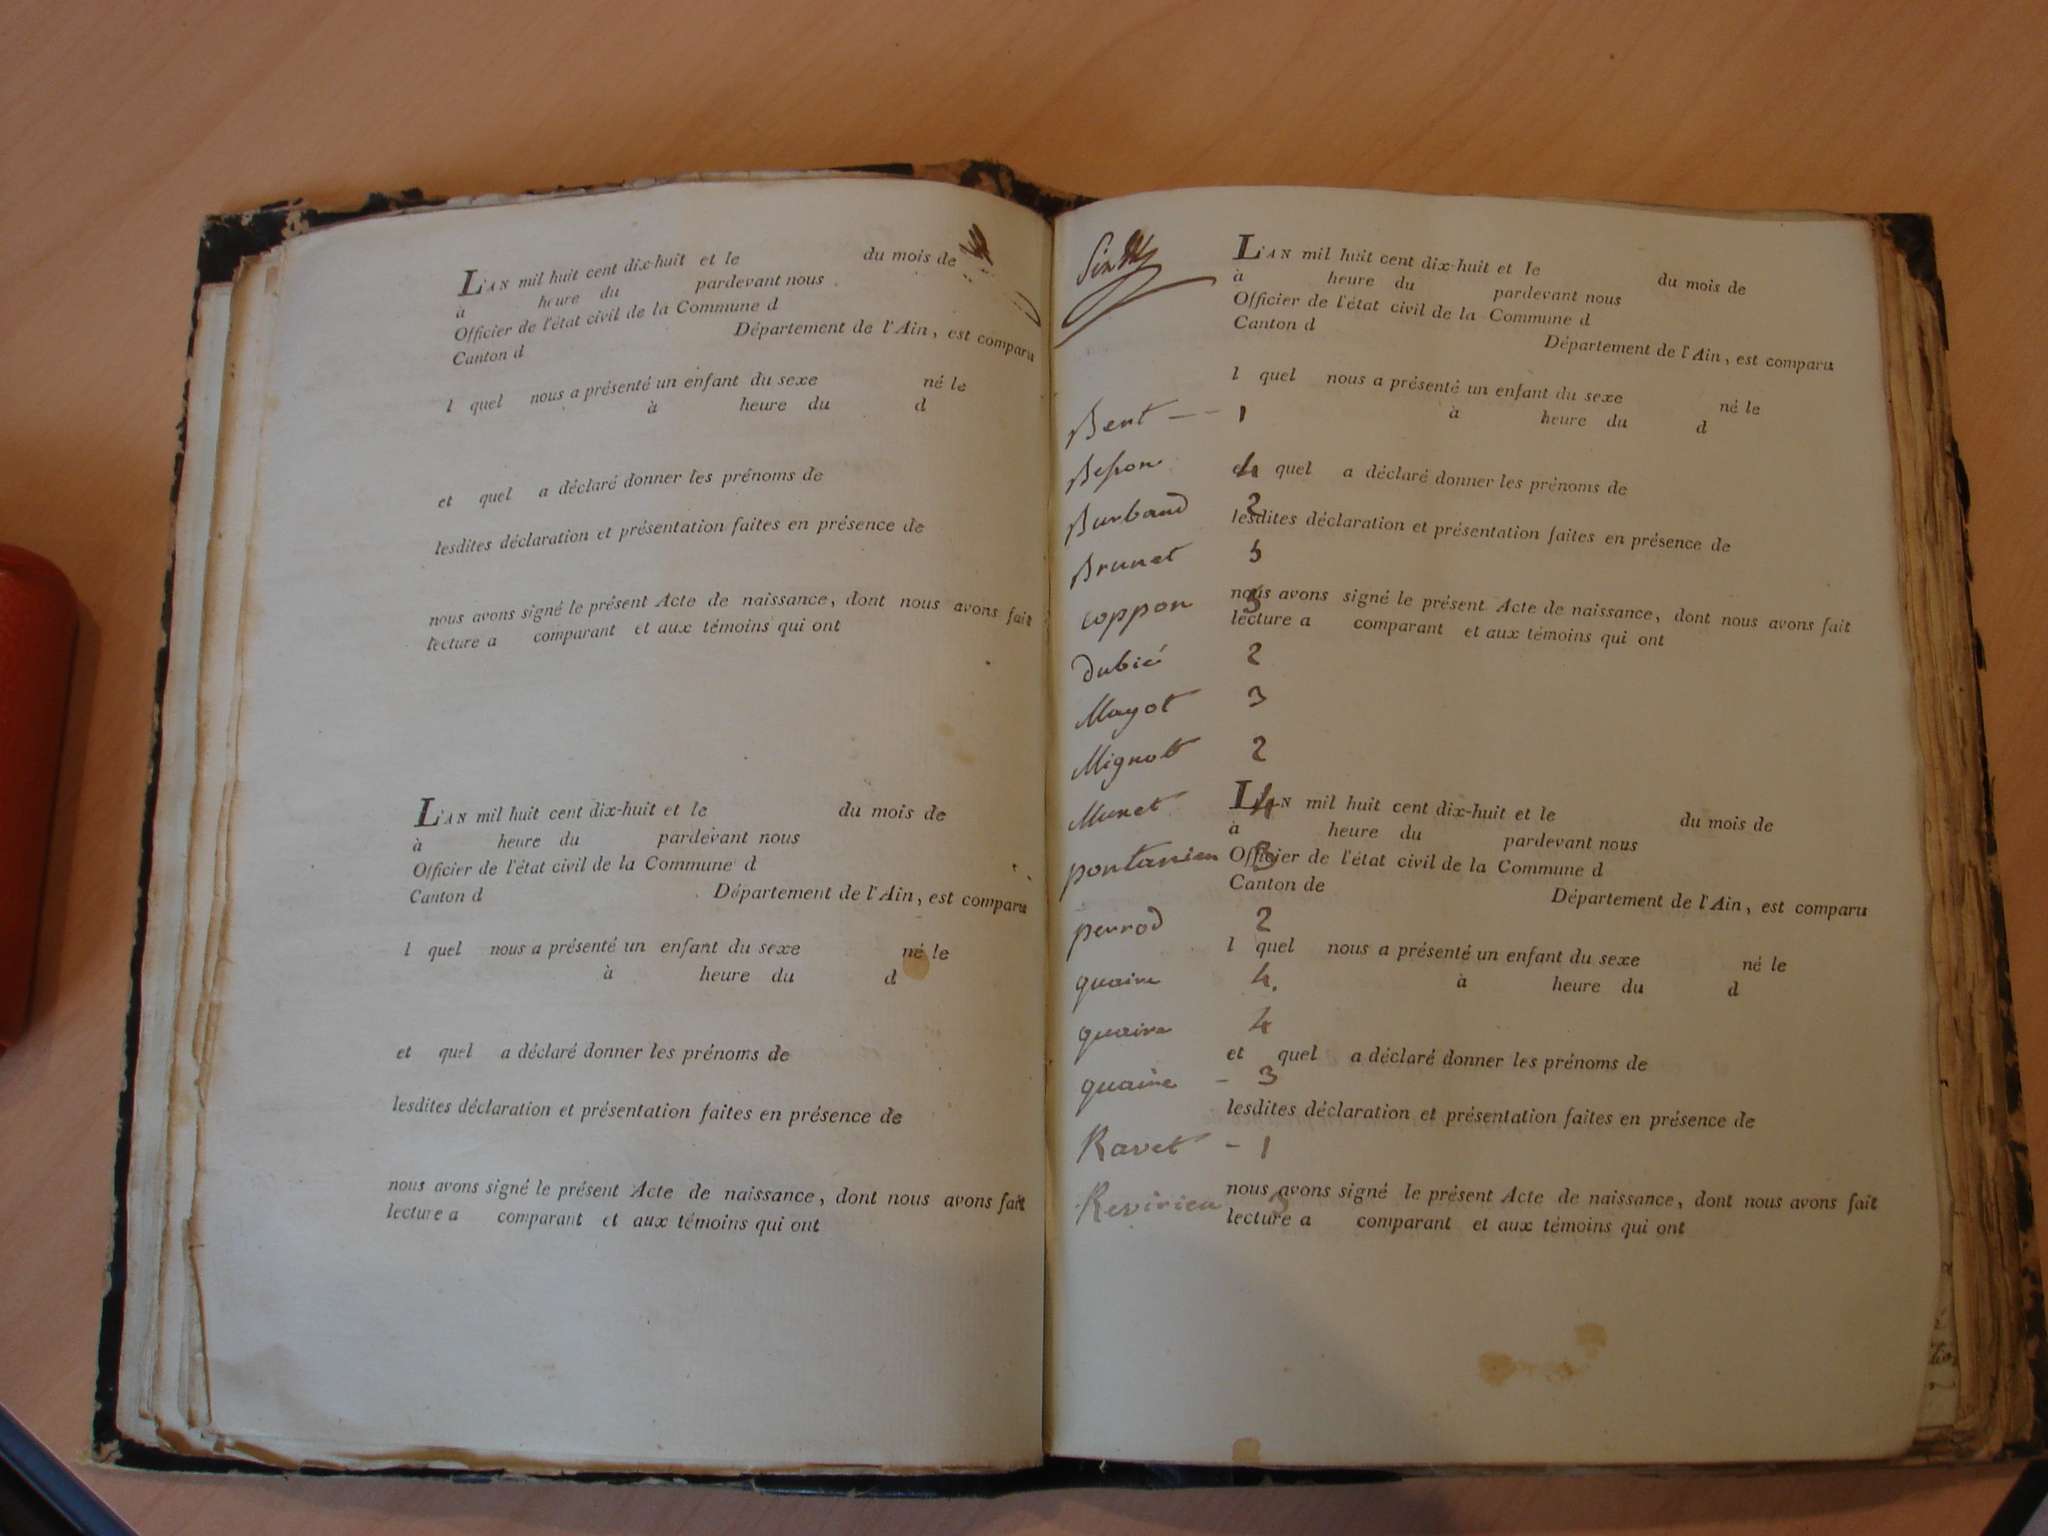 L'AN mil huit cent dix-huit et le du mois de
à heure du pardevant nous
Officier de l'état civil de la Commune d
Canton d Département de l'Ain, est comparu
l quel nous a présenté un enfant du sexe né le
à heure du d
et quel a déclaré donner les prénoms de
lesdites déclaration et présentation faites en présence de
nous avons signé le présent Acte de naissance, dont nous avons fait
lecture a comparant et aux témoins qui ont
L'AN mil huit cent dix-huit et le du mois de
à heure du pardevant nous
Officier de l'état civil de la Commune d
Canton d Département de l'Ain, est comparu
l quel nous a présenté un enfant du sexe né le
à heure du d
et quel a déclaré donner les prénoms de
lesdites déclaration et présentation faites en présence de
nous avons signé le présent Acte de naissance, dont nous avons fait
lecture a comparant et aux témoins qui ont
Bert 1
4
Burband 2
Brunet 5
coppon 5
dubié 2
Mayot 3
Mignot 2
Munet 4
pontanien 3
perrod 2
quaire 4.
quaire 4
quaire - 3
Ravet - 1
Revirieu 5
L'AN mil huit cent dix-huit et le du mois de
à heure du pardevant nous
Officier de l'état civil de la Commune d
Canton d Département de l'Ain, est comparu
l quel nous a présenté un enfant du sexe né le
à heure du d
et quel a déclaré donner les prénoms de
lesdites déclaration et présentation faites en présence de
nous avons signé le présent Acte de naissance, dont nous avons fait
lecture a comparant et aux témoins qui ont
L'AN mil huit cent dix-huit et le du mois de
à heure du pardevant nous
Officier de l'état civil de la Commune d
Canton de Département de l'Ain, est comparu
l quel nous a présenté un enfant du sexe né le
à heure du d
et quel a déclaré donner les prénoms de
lesdites déclaration et présentation faites en présence de
nous avons signé le présent Acte de naissance, dont nous avons fait
lecture a comparant et aux témoins qui ont